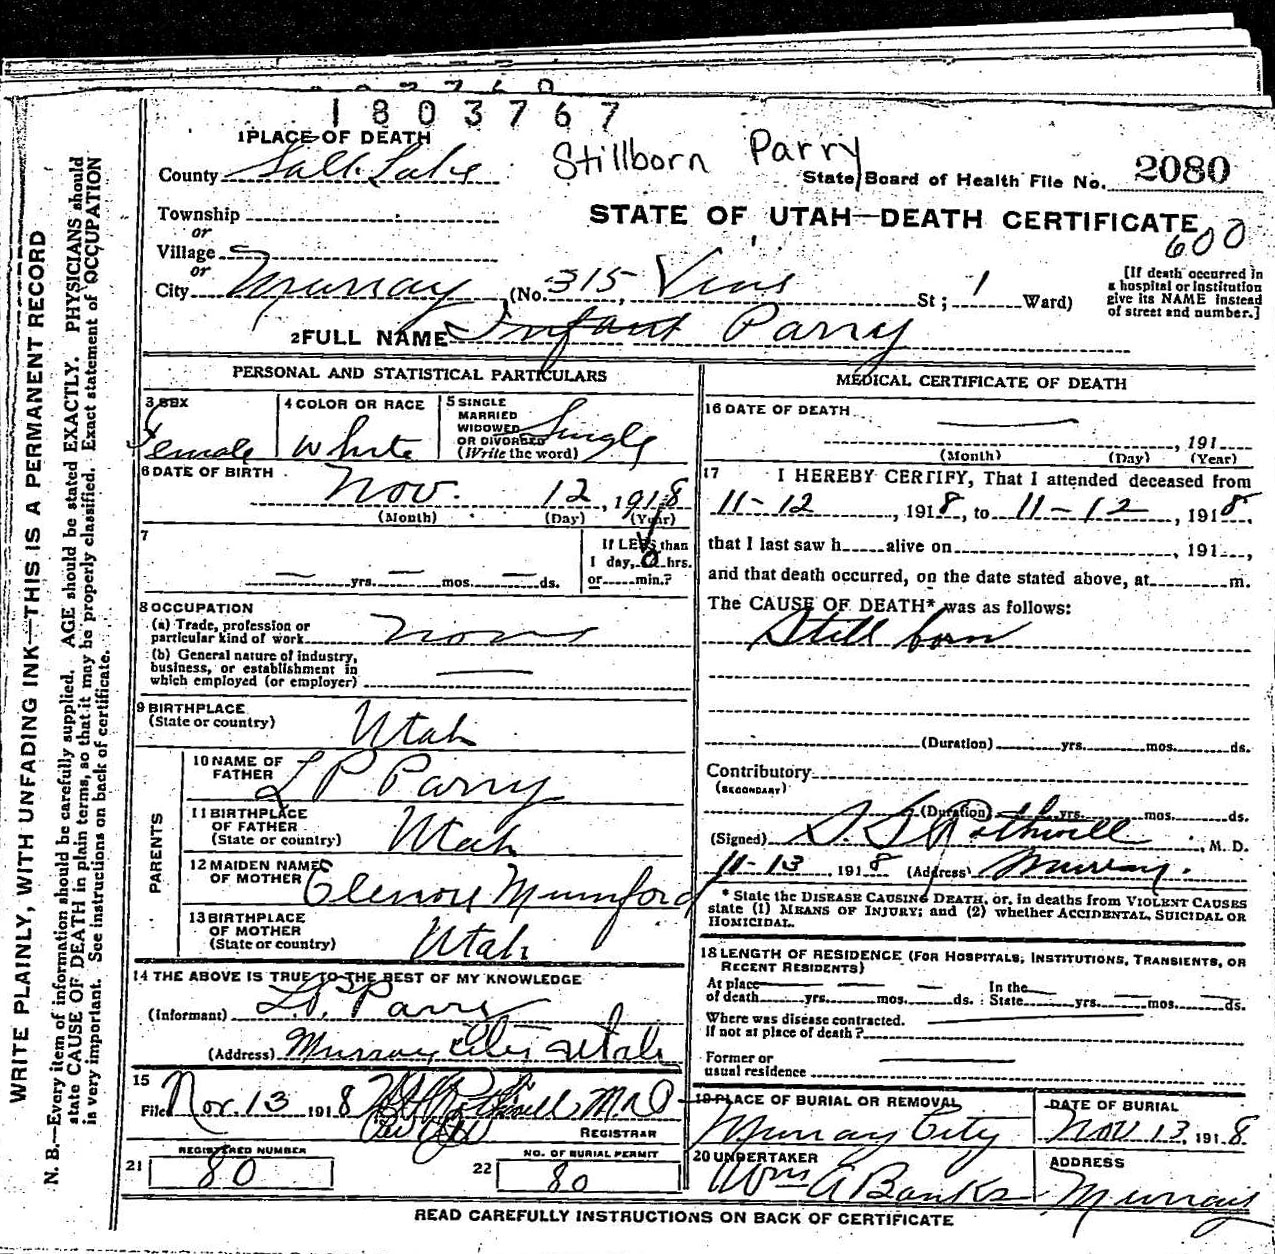 1803767
1 PLACE OF DEATH
County Salt Lake
Stillborn Parry
State Board of Health File No. 2080
Township
or
STATE OF UTAH—DEATH CERTIFICATE
600
Village
or
City Murray (No. 315 Vine St; 1 Ward)
[If death occurred in
a hospital or institution
give its NAME instead
of street and number.]
2 FULL NAME Infant Parry
PERSONAL AND STATISTICAL PARTICULARS
3 SEX
Female
4 COLOR OR RACE
White
5 SINGLE
MARRIED
WIDOWED
OR DIVORCED
(Write the word)
Single
6 DATE OF BIRTH
Nov. 12, 1918
(Month) (Day) (Year)
7
— yrs. — mos. — ds.
If LESS than
1 day, 0 hrs.
or min.?
8 OCCUPATION
(a) Trade, profession or
particular kind of work None
(b) General nature of industry,
business, or establishment in
which employed (or employer) —
9 BIRTHPLACE
(State or country) Utah
PARENTS
10 NAME OF
FATHER L P Parry
11 BIRTHPLACE
OF FATHER
(State or country) Utah
12 MAIDEN NAME
OF MOTHER Mumford
13 BIRTHPLACE
OF MOTHER
(State or country) Utah
14 THE ABOVE IS TRUE TO THE BEST OF MY KNOWLEDGE
(Informant) L.P. Parry
(Address) Murray City Utah
15
Filed Nov. 13 1918 Rothwell, M.D.
REGISTRAR
REGISTERED NUMBER
21 80
NO. OF BURIAL PERMIT
22 80
MEDICAL CERTIFICATE OF DEATH
16 DATE OF DEATH —
, 191
(Month) (Day) (Year)
17 I HEREBY CERTIFY, That I attended deceased from
11-12, 1918, to 11-12, 1918,
that I last saw h alive on , 191 ,
and that death occurred, on the date stated above, at m.
The CAUSE OF DEATH* was as follows:
Still born
(Duration) yrs. mos. ds.
Contributory
(SECONDARY)
(Duration) yrs. mos. ds.
(Signed) Rothwell, M. D.
11-13 1918 (Address) Murray.
* State the DISEASE CAUSING DEATH, or, in deaths from VIOLENT CAUSES
state (1) MEANS OF INJURY; and (2) whether ACCIDENTAL, SUICIDAL OR
HOMICIDAL.
18 LENGTH OF RESIDENCE (FOR HOSPITALS, INSTITUTIONS, TRANSIENTS, OR
RECENT RESIDENTS)
At place
of death yrs. mos. ds.
In the
State yrs. mos. ds.
Where was disease contracted.
If not at place of death?
Former or
usual residence
19 PLACE OF BURIAL OR REMOVAL
Murray City
DATE OF BURIAL
Nov 13, 1918
20 UNDERTAKER
Wm A Banks
ADDRESS
Murray
READ CAREFULLY INSTRUCTIONS ON BACK OF CERTIFICATE
WRITE PLAINLY, WITH UNFADING INK—THIS IS A PERMANENT RECORD
N. B.—Every item of information should be carefully supplied. AGE should be stated EXACTLY. PHYSICIANS should
state CAUSE OF DEATH in plain terms, so that it may be properly classified. Exact statement of OCCUPATION
is very important. See instructions on back of certificate.